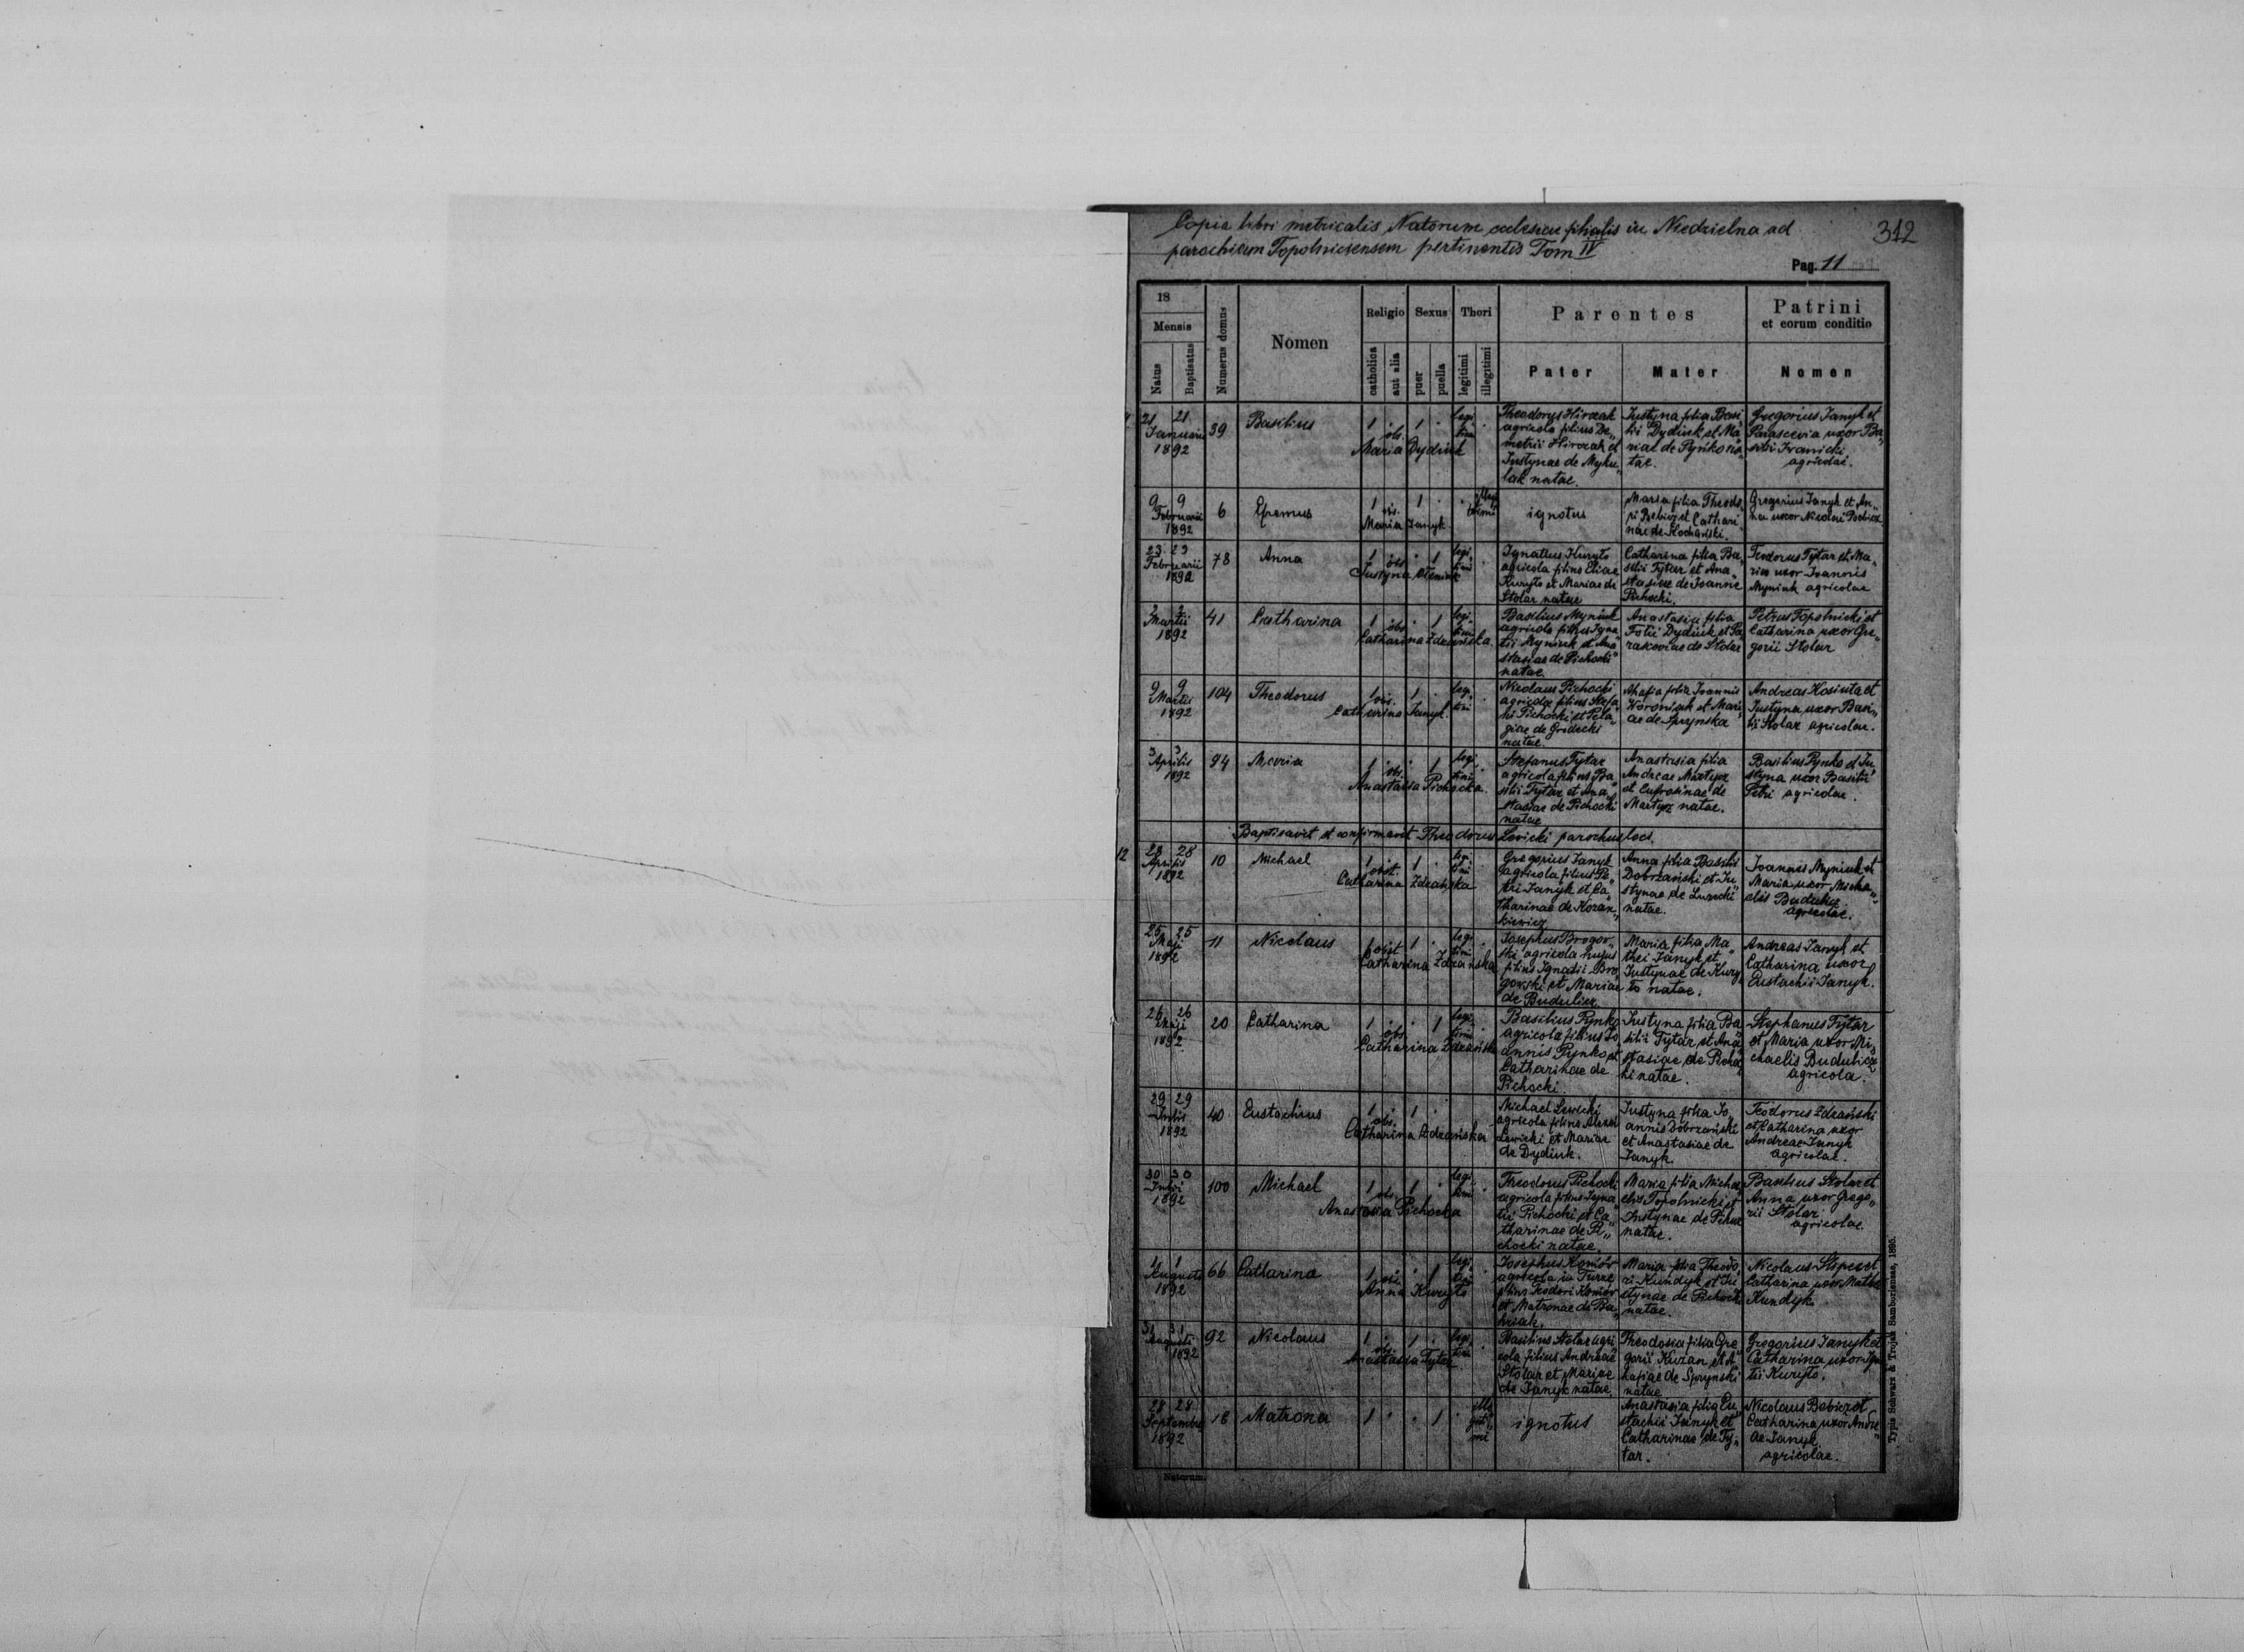 Copia libri metricalis Natorum ecclesiae filialis in Niedzielna ad
parochiam Topolnicensem pertinentis Tom IV
312
Pag. 11
18
Mensis
Natus
Baptisatus
Numerus domus
Nomen
Religio
catholica
aut alia
Sexus
puer
puella
Thori
legitimi
illegitimi
Parentes
Pater
Mater
Patrini
et eorum conditio
Nomen
21 21
Januarii
1892
39
Basilius
1 . 1 . legi
timi .
obs.
Maria Dydiuk
Theodorus Hirczak
agricola filius De„
metrii Hirczak et
Justynae de Myku„
lak natae.
Justyna filia Basi
lii Dydiuk et Ma„
riae de Pyńko na„
tae.
Gregorius Janyk et
Parascevia uxor Ba„
silii Iwanicki
agricolae.
9 9
Februarii
1892
6
Efremus
1 . 1 . . illegi
timi
obs.
Maria Janyk
ignotus
Maria filia Theodo„
ri Bebicz et Cathari„
nae de Kochański.
Gregorius Janyk et An„
na uxor Nicolai Bebicz
23 23
Februarii
1892
78
Anna
1 . . 1 legi
timi .
obs.
Justyna
Ignatius Kuryło
agricola filius Eliae
Kuryło et Mariae de
Stolar natae
Catharina filia Ba„
silii Tytar et Ana„
stasiae de Joanne
Pichocki.
Teodorus Tytar et Ma„
ria uxor Joannis
Myniuk agricolae
2 2
Martii
1892
41
Catharina
1 . . 1 legi
timi .
obs.
Catharina Zdzańska
Basilius Myniuk
agricola filius Igna„
tii Myniuk et Ana
stasiae de Pichocki
natae.
Anastasia filia
Dydiuk et Pa„
rasceviae de Stolar
Petrus Topolnicki et
Catharina uxor Gre„
gorii Stolar
9 9
Martii
1892
104
Theodorus
1 . 1 . legi
timi .
obs.
Catharina Janyk.
Nicolaus Pichocki
agricola filius Stefa„
ni Pichocki et Pela„
giae de Grodecki
natae.
Ahafia filia Joannis
Woroniuk et Mari„
ae de Sprynska
Andreas Kosiuta et
Justyna uxor Basi„
lii Stolar agricolae.
3 3
Aprilis
1892
94
Maria
1 . . 1 legi
timi .
obs.
Anastasia Pichocka.
Stefanus Tytar
agricola filius Ba„
silii Tytar et Ana„
stasiae de Pichocki
natae
Anastasia filia
Andreae Martycz
et Eufrosinae de
Martycz natae.
Basilius Pynko et Ju„
styna uxor Basilii
Petri agricolae.
Baptisavit et confirmavit Theodorus Lewicki parochus loci.
12
28 28
Aprilis
1892
10
Michael
1 . 1 . legi
timi .
obst.
Catharina Zdzańska
Gregorius Janyk
agricola filius Pe„
tri Janyk et Ca„
tharinae de Kozan„
kiewicz
Anna filia Basilii
Dobrzański et Ju„
stynae de Luzecki
natae.
Joannes Myniuk et
Maria uxor Micha„
elis Budulicz
agricolae.
25 25
Maji
1892
11
Nicolaus
1 . 1 . legi
timi .
obst
Catharina Zdzańska
Josephus Brogow„
ski agricola hujus
filius Ignatii Bro„
gowski et Mariae
de Budulicz.
Maria filia Ma„
thei Janyk et
Justynae de Kury„
ło natae.
Andreas Janyk et
Catharina uxor
Eustachii Janyk.
26 26
Maji
1892
20
Catharina
1 . . 1 legi
timi .
obs.
Catharina Zdzańska
Basilius Pynko
agricola filius Jo„
annis Pynko et
Catharinae de
Pichocki.
Justyna filia Ba„
silii Tytar et Ana„
stasiae de Pichoc„
ki natae.
Stephanus Tytar
et Maria uxor Mi„
chaelis Budulicz
agricola.
29 29
Julii
1892
40
Eustachius
1 . 1 .
obs.
Catharina Zdzańska
Michael Lewicki
agricola filius Alexii
Lewicki et Mariae
de Dydiuk.
Justyna filia Jo„
annis Dobrzański
et Anastasiae de
Janyk.
Teodorus Zdzański
et Catharina uxor
Andreae Janyk
agricolae.
30 30
Julii
1892
100
Michael
1 . 1 . legi
timi .
obs.
Anastasia Pichocka
Theodorus Pichocki
agricola filius Igna„
tii Pichocki et Ca„
tharinae de Pi„
chocki natae.
Maria filia Micha„
elis Topolnicki et
Justynae de
natae.
Basilius Stolar et
Anna uxor Grego„
rii Stolar
agricolae
1 1
Augusti
1892
66
Catharina
1 . . 1 legi
timi .
obs.
Anna Kuryło
Josephus Komów
agricola in Turze
filius Teodori Komów
et Matronae de Ba„
hriak.
Maria filia Theodo„
ri Kundyk et Ju„
stynae de Pichocki
natae.
Nicolaus et
Catharina uxor Mathei
Kundyk.
31 31
Augusti
1892
92
Nicolaus
1 . 1 . legi
timi .
obs.
Anastasia Tytar
Basilius Stolar agri„
cola filius Andreae
Stolar et Mariae
de Janyk natae.
Theodosia filia Gre„
gorii Kuzan et A„
hafiae de Sprynski
natae
Gregorius Janyk et
Catharina uxor Igna
tii Kuryło.
28 28
Septembris
1892
18
Matrona
1 . . 1 . ille
giti„
mi
ignotus
Anastasia filia Eu„
stachii Janyk et
Catharinae de Ty„
tar.
Nicolaus Bebicz et
Catharina uxor Andre„
ae Janyk
agricolae.
Natorum.
Typis Schwarz & Trojan Samboriensis, 1895.